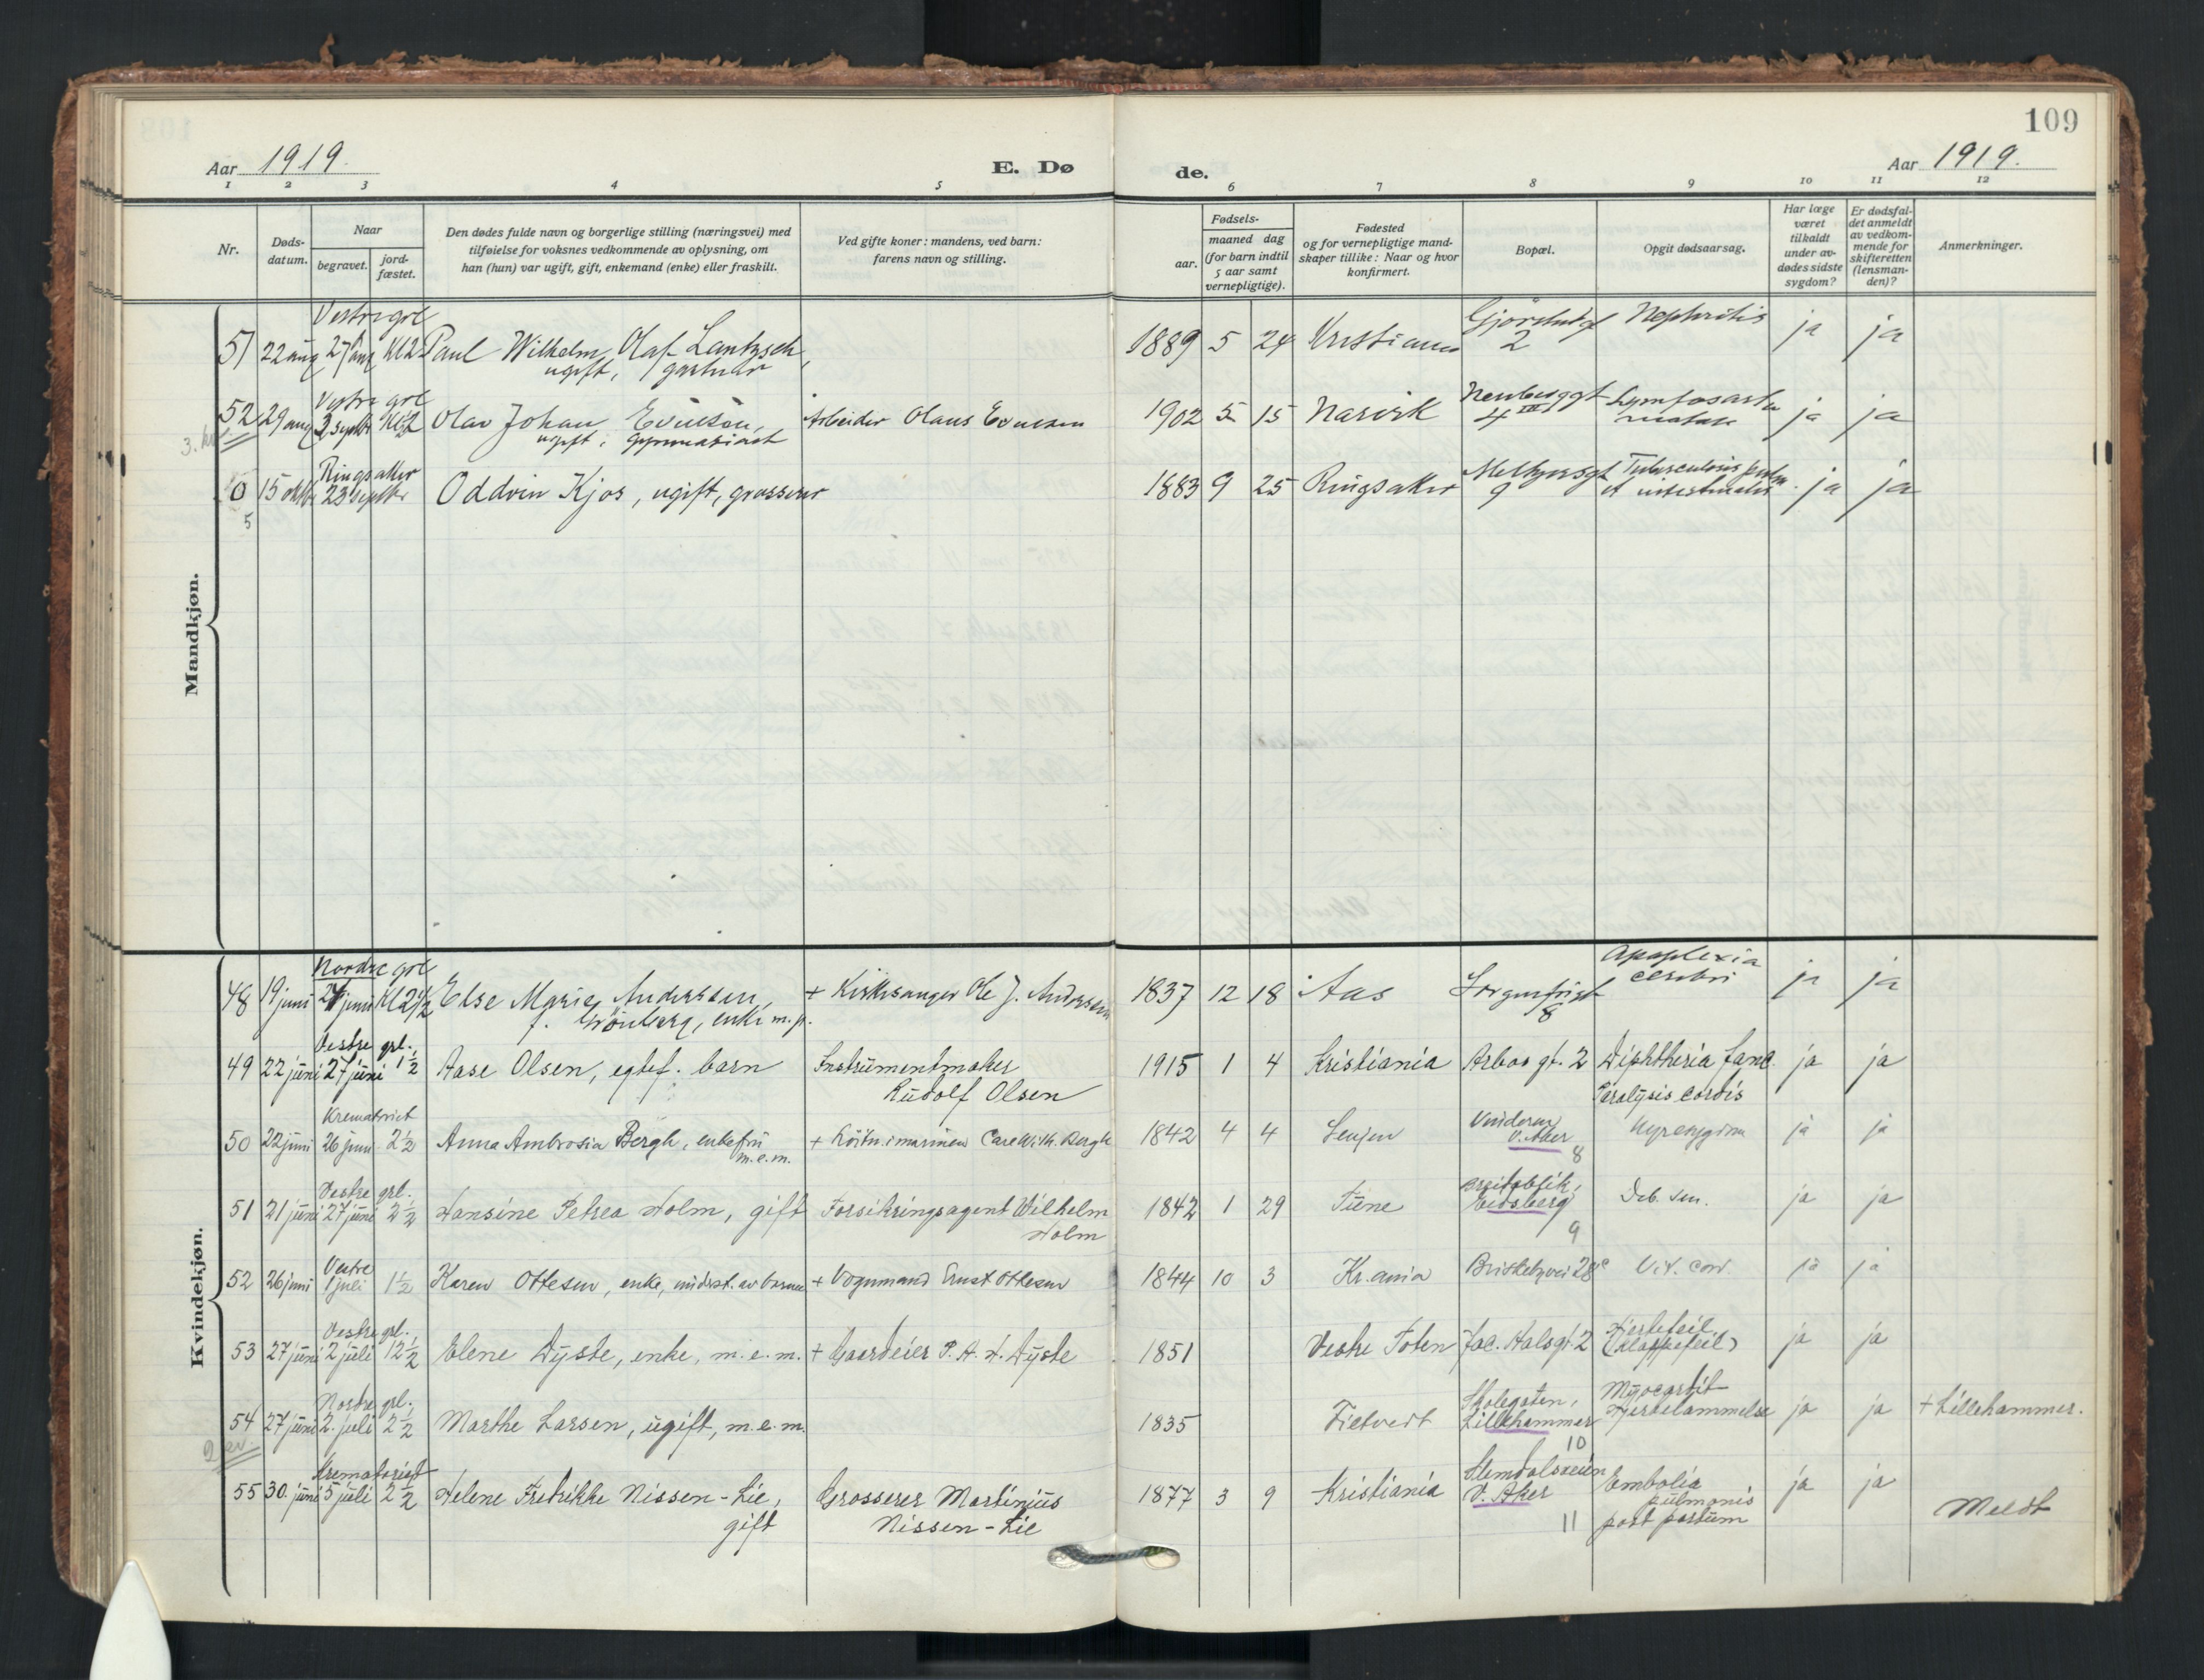 109
Aar 1919.
E. Dø
de.
Aar 1919.
1 2 3 4 5 6 7 8 9 10 11 12
Nr.
Døds-
datum.
Naar
begravet.
jord-
fæstet.
Den dødes fulde navn og borgerlige stilling (næringsvei) med
tilføielse for voksnes vedkommende av oplysning, om
han (hun) var ugift, gift, enkemand (enke) eller fraskilt.
Ved gifte koner: mandens, ved barn:
farens navn og stilling.
Fødsels-
aar.
maaned dag
(for barn indtil
5 aar samt
vernepligtige).
Fødested
og for vernepligtige mand-
skaper tillike: Naar og hvor
konfirmert.
Bopæl.
Opgit dødsaarsag.
Har læge
været
tilkaldt
under av-
dødes sidste
sygdom?
Er dødsfal-
det anmeldt
av vedkom-
mende for
skifteretten
(lensman-
den)?
Anmerkninger.
Mandkjøn.
Vestre grl
51 22 aug 27 aug Kl 2 Paul Wilhelm Olaf Lantzsch, 1889 5 24 Kristiania 2 Nephritis ja ja
ugift, gartner
Vestre grl
52 29 aug 3 septbr Kl 2 Olav Johan Evensen, Arbeider Olaus Evensen 1902 5 15 Narvik 4 III ja ja
ugift, gymnasiast
Ringsaker
0 15 23 septbr Oddvin Kjos, ugift, grosserer 1883 9 25 Ringsaker Meltzersgt 9 Tuberculosis pulm. ja ja
5 et intestinalis
Kvindekjøn.
Nordre grl Apoplexia
48 19 juni 24 juni Kl 2 1/2 Else Marie Anderssen, + Kirkesanger Ole J. Anderssen 1837 12 18 Aas Sorgenfrigt 8 cerebri ja ja
f. Grönberg, enke m.p.
Vestre grl.
49 22 juni 27 juni 1 1/2 Aase Olsen, egtef. barn Instrumentmaker 1915 1 4 Kristiania Arbos gt. 2 Diphtheria fauc. ja ja
Rudolf Olsen Paralysis cordis
Krematoriet
50 22 juni 26 juni 2 1/2 Anna Ambrosia Bergh, enkefru + Löitn. i marinen Carl Wilh. Bergh 1842 4 4 Senjen Vinderen V. Aker Nyresygdom ja ja
m.e.m. 8
Vestre grl.
51 21 juni 27 juni 2 1/2 Hansine Petrea Holm, gift Forsikringsagent Wilhelm 1842 1 29 Tune Breidablik, Eidsberg Deb. sen. ja ja
Holm 9
Vestre
52 26 juni 1 juli 1 1/2 Karen Ottesen, enke, underst. av barnene + Vognmand Ernst Ottesen 1844 10 3 Kr.ania Briskebyvei 28c Vit. cord. ja ja
Vestre grl.
53 27 juni 2 juli 12 1/2 Elene Dyste, enke, m.e.m. + Gaardeier P. A. H. Dyste 1851 Vestre Toten Jac. Aalsgt. 2 Hjertefeil (klappefeil) ja ja
Nordre grl.
54 27 juni 2. juli 2 1/2 Marthe Larsen, ugift, m.e.m. 1835 Tretvedt Skolegaten, Lillehammer Myocardit Hjertelammelse ja ja + Lillehammer.
10
Krematoriet
55 30. juni 5 juli 2 1/2 Helene Fredrikke Nissen-Lie, Grosserer Martinius 1877 3 9 Kristiania Slemdalsveien V. Aker Embolia pulmonis ja ja
gift Nissen-Lie 11 post partum Meldt